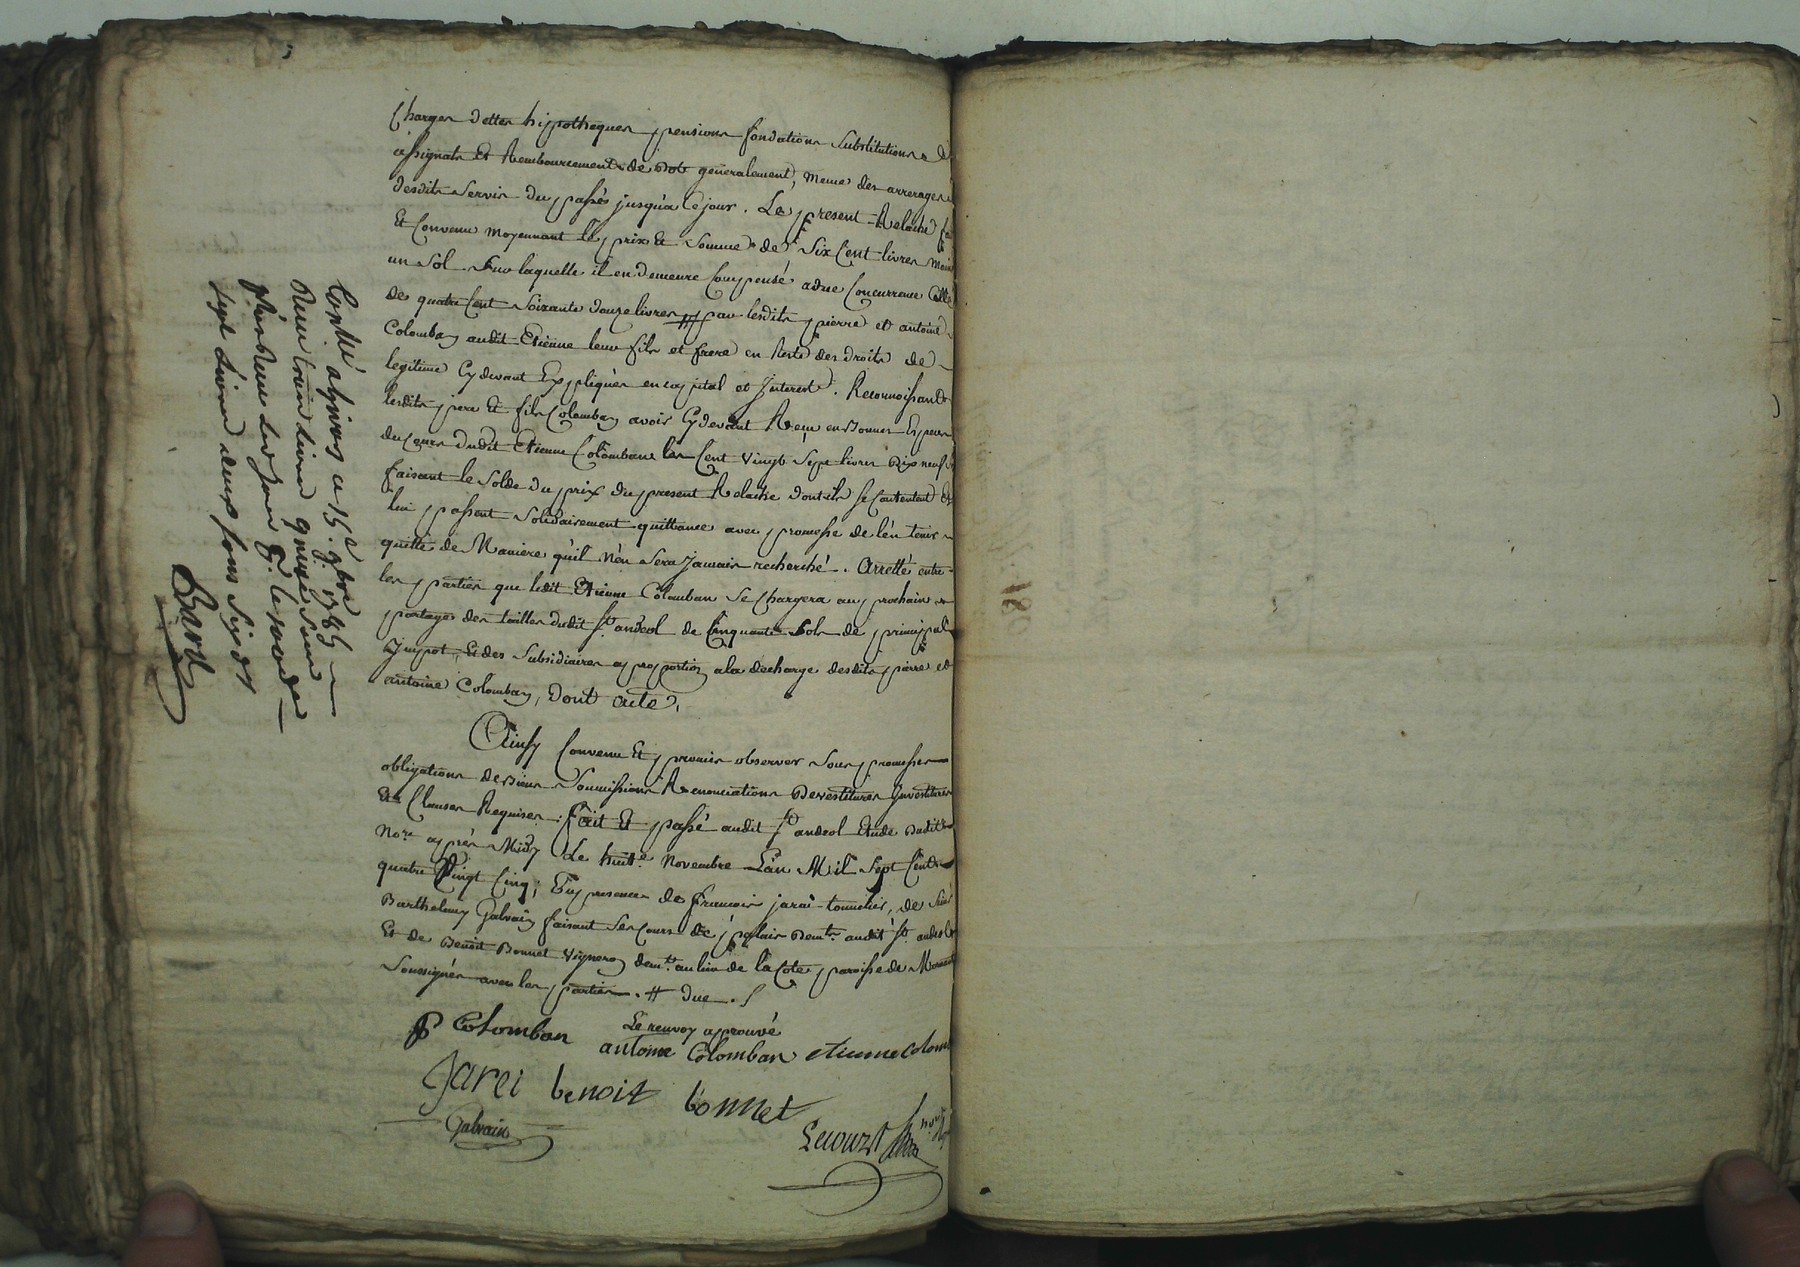 Charges dettes hipotheques pensions fondations Substitutions de
assignats Et Remboursements de Dot generalement, meme des arrerages
desdits Servis du passés jusqu'a ce jour. Le present Relache fai
Et Convenu moyennant le prix Et Somme de Six Cent livres moin
un Sol Sur laquelle il en demeure Compensé a due Concurrence Celle
de quatre Cent Soixante douze livres # par lesdits pierre et antoine
Colomban audit Etienne leur fils et frere en Reste des droits de
legitime Cy devant Expliqués en capital et Interest. Reconnoissants
lesdits pere Et fils Colomban avoir Cy devant Reçu en Bonnes Especes
du Cours dudit Etienne Colomban les Cent vingt Sept livres Dix neuf s
faisant le Solde du prix du present Relache dont ils se Contentent Et
lui passent Solidairement quittance avec promesse de l'en tenir
quitte de Maniere qu'il n'en Sera jamais recherché. Arretté entre
les parties que ledit Etienne Colomban Se Chargera au prochain
partage des tailles dudit St. andeol de Cinquante Sols de principal
Impot, Et des Subsidiaires a proportion a la decharge desdits pierre et
antoine Colomban, Dont acte,
Ainsy Convenu Et promis observer Sous promesses
obligations de Biens Soumissions Renonciations Devestitures Investitures
Et Clauses Requises. fait Et passé audit St. andeol Etude dudit
Nore. après Midy Le huite. Novembre L'an Mil Sept Cents
quatre Vingt Cinq; En presence de françois jarei tonnelier, de Sieur
Barthelemy Galvain faisant Ses Cours de Demts. audit St. andeol
Et de Benoit Bonnet Vigneron demt. au lieu de la Cote paroisse de Mornant
Soussignés avec les parties. # due.
P Colomban Le renvoy approuvé
antoine Colomban etienne Colomb
Jarei benoit bonnet
Galvain
Lecourt nore
Conlle. a givors ce 15e. 9bre 1785
Reçu trois livres quinze sous
plus Reçu led jour
Sept Livres deux sous six drs